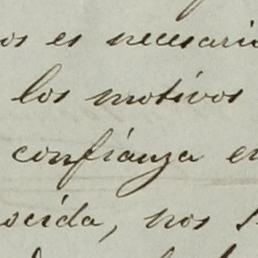 os es necesario
los motivos
confianza en
ocida, nos